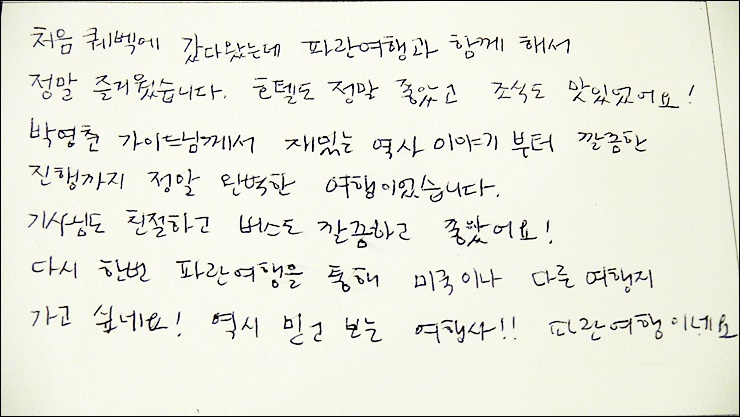 처음 퀘벡에 갔다왔는데 파란여행과 함께 해서
정말 즐거웠습니다. 호텔도 정말 좋았고 조식도 맛있었어요!
박영춘 가이드님께서 재밌는 역사 이야기 부터 깔끔한
진행까지 정말 완벽한 여행이었습니다.
기사님도 친절하고 버스도 깔끔하고 좋았어요!
다시 한번 파란여행을 통해 미국이나 다른 여행지
가고 싶네요! 역시 믿고 보는 여행사!! 파란여행이네요